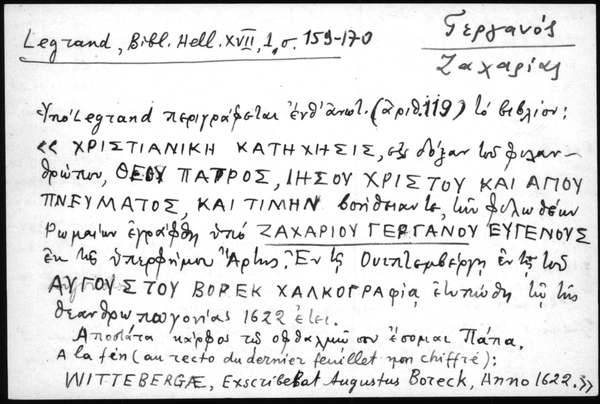 Legrand, Bibl. Hell. XVII, 1, σ. 159-170
Γεργανός
Ζαχαρίας
Ὑπό Legrand περιγράφεται ἔνθ' ἀνωτ. (ἀριθ. 119) τό βιβλίον:
« ΧΡΙΣΤΙΑΝΙΚΗ ΚΑΤΗΧΗΣΙΣ, εἰς δόξαν τοῦ φιλαν-
θρώπου, ΘΕΟΥ ΠΑΤΡΟΣ, ΙΗΣΟΥ ΧΡΙΣΤΟΥ ΚΑΙ ΑΓΙΟΥ
ΠΝΕΥΜΑΤΟΣ, ΚΑΙ ΤΙΜΗΝ βοήθειαντε, τῶν φιλοθέων
Ρωμαίων ἐγράφθη ὑπό ΖΑΧΑΡΙΟΥ ΓΕΡΓΑΝΟΥ ΕΥΓΕΝΟΥΣ
ἐκ τῆς ὑπερφήμου Ἄρτης. Ἐν τῇ Ουιττεμβέργῃ ἐν τῇ τοῦ
ΑΥΓΟΥΣΤΟΥ BOREK ΧΑΛΚΟΓΡΑφίᾳ ἐτυπώθη τῷ τῆς
θεανθρωπογονίας 1622 ἔτει.
Αποστάτα κάρφος τῷ οφθαλμῷ σου ἔσομαι Πάπα.
A la fin (au recto du dernier feuillet non chiffré):
WITTEBERGÆ, Exscribebat Augustus Boreck, Anno 1622.»